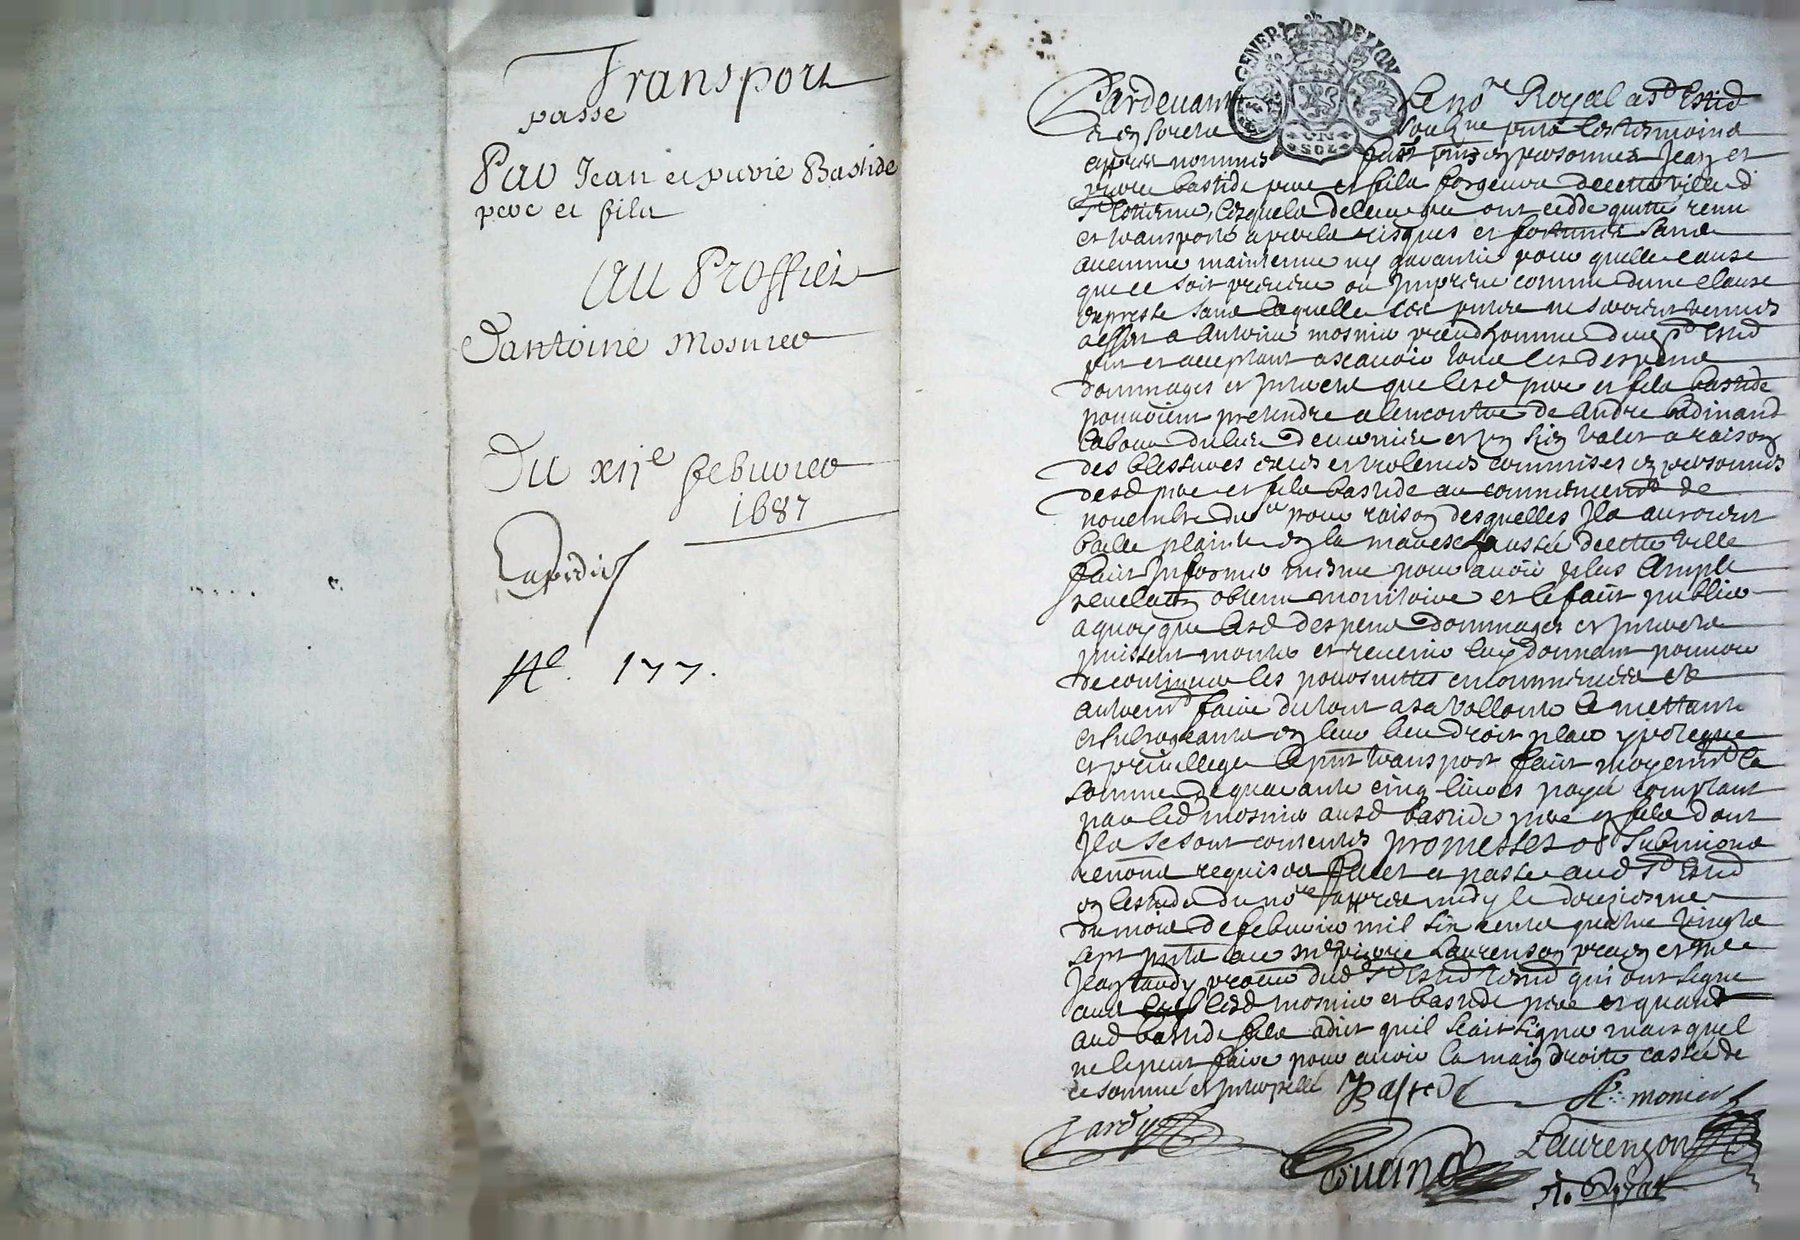 Transport
passe
Par Jean et pierre Bastide
pere et fils
Au Proffict
Dantoine Mosnier
Du xiie febvrier
1687
N.e 177.
GENER DE LYON
Pardevant Le no.re Royal a S.t Estie
et en foretz soubz.ne pnts les tesmoins
apres nommes en personnes Jean et
pierre bastide pere et fils forgeurs de cette ville d
S.t Estienne, lesquels de leur gre ont cedde quitte remi
et transporte a perils risques et fortunes sans
aucunne maintenue ny garantie pour quelle cause
que ce soit preveue ou impreveue comme dune clause
expresse sans laquelle les parties ne seroient venues
a effet a Antoine mosnier preudhomme dud S.t Estie
pnt et acceptant ascavoir tous les despens
dommages et interests que lesd pere et fils bastide
pouvoient pretendre alencontre de Andre badinand
labour du lieu de et son valet a raison
des blessures exces et violences commises en personnes
desd pere et fils bastide au commencem.t de
novembre der.er pour raison desquelles Ils auroient
baille plainte en la marechaussee de cette ville
fait Informer mesme pour avoir plus Ample
revelation obtenu monitoire et le fait publier
a quoy que lesd despens dommages et interests
puissent monter et revenir luy donnant pouvoir
de continuer les poursuittes encommencees et
autrem.t faire du tout a sa vollonte Le mettant
et subrogeants en leur lieu droit place ypoteque
et privillege Le pnt transport fait moyenn.t la
somme de quarante cinq livres paye comptant
par led mosnier ausd bastide pere et fils dont
Ils se sont contentes promesses obl submions
renons requises fait et passe aud S.t Estie
en lestude du no.re apres midy le douziesme
du mois de febvrier mil six cents quatre vingts
sept pnts a M.e pierre Laurenson pra.en et M.e
Jean tardy pra.en dud S.t Estie tesmd qui ont signe
avec lesd mosnier et bastide pere et quand
aud bastide fils a dit quil scait signer mais quel
ne le peut faire pour avoir la main droite cassee de
ce somme et interpelle Bastide A: monier
Tardy
Laurenson